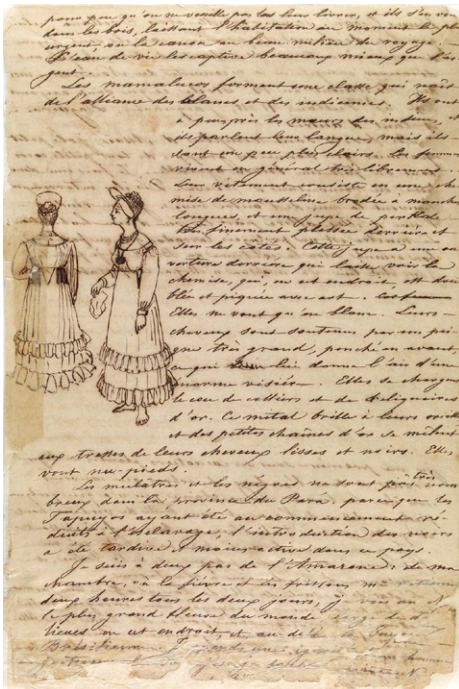 pour peu qu'on ne veuille pas les leur livrer, et ils s'en vont
dans les bois, laissant l'habitation au moment le plus
urgent, ou le canot au beau milieu du voyage.
L'eau de vie les captive beaucoup mieux que l'ar-
gent.
Les mamalucos forment une classe qui naît
de l'alliance des blancs et des indiennes. Ils ont
à peu près les mœurs des indiens, et
ils parlent leur langue, mais ils
sont un peu plus clairs. Les femmes
vivent en général très librement
Leur vêtement consiste en une che
mise de mousseline brodée a manches
longues, et une jupe de
finement plissée derrière et
sur les côtés. Cette jupe a une ou
verture derrière qui laisse voir la
chemise, qui, en cet endroit, est
bleu et piquée avec art.
Elles ne vont qu'en blanc. Leurs
cheveux sont soutenus par un pei
gne très grand, penché en avant,
ce qui leur donne l'air d'une
Elles se chargent
le cou de colliers et de reliquaires
d'or. Ce métal brille à leurs oreilles
et des petites chaînes d'or se mêlent
aux tresses de leurs cheveux lisses et noirs. Elles
vont nu-pieds.
Les mulâtres et les nègres ne sont pas très nom
breux dans la province du Pará, parce que les
Tapuyos ayant été au commencement ré-
duits à l'esclavage, l'introduction des noirs
a été tardive et moins active dans ce pays.
Je suis à deux pas de l'Amazone; de ma
chambre, où la fièvre et les frissons me
deux heures tous les deux jours, je vois
le plus grand fleuve du monde
lieues en cet endroit, et au delà